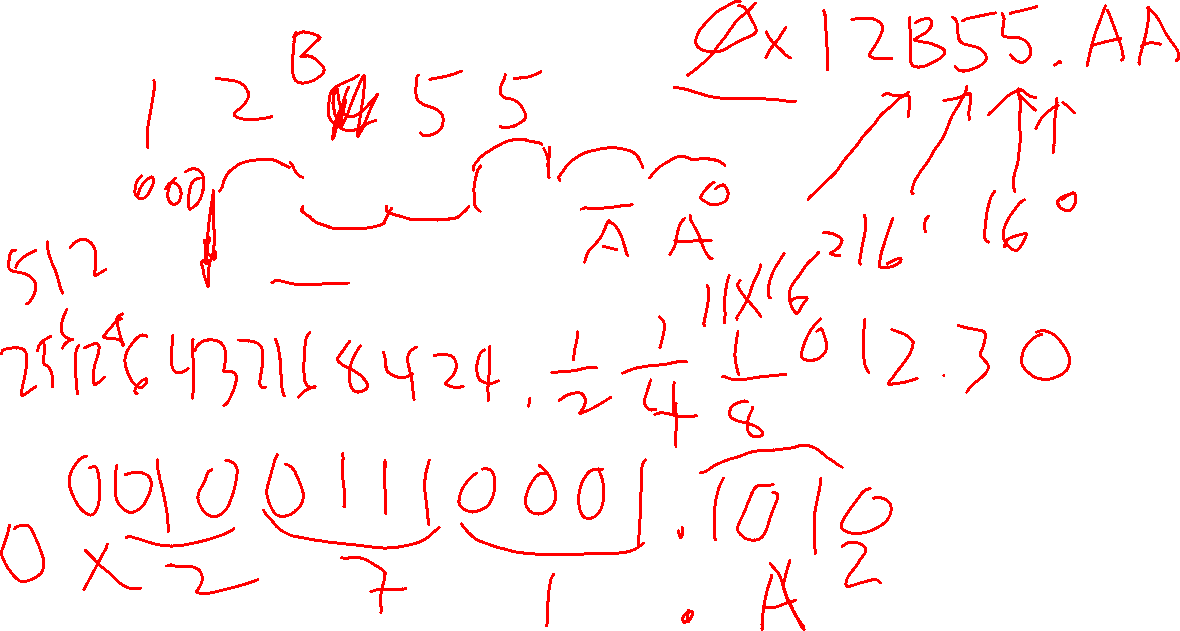 0x12B55.AA
1 2 B 5 5
000
A A 0
16² 16¹ 16⁰
11x16²
512
256 128 64 32 16 8 4 2 . 1/2 1/4 1/8 0 12.30
0010 0111 0001 . 1010 2
0x 2 7 1 . A